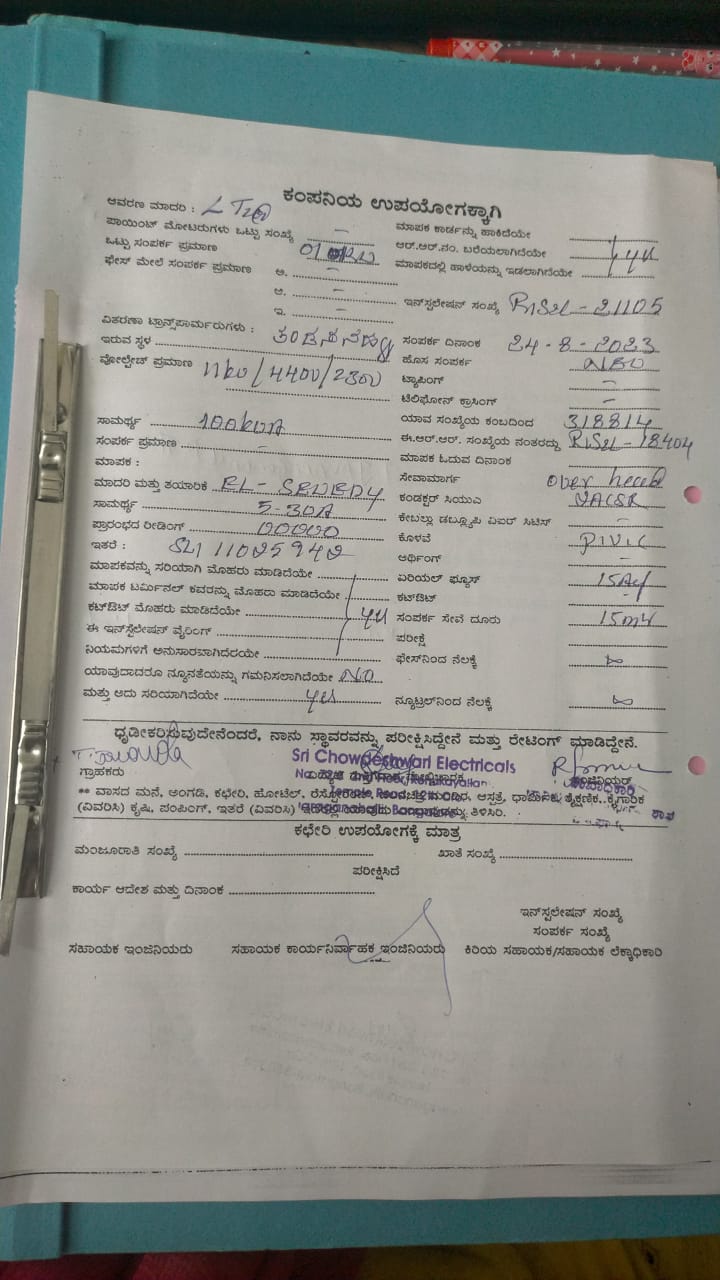 ಕಂಪನಿಯ ಉಪಯೋಗಕ್ಕಾಗಿ
ಆವರಣ ಮಾದರಿ :
ಮಾಪಕ ಕಾರ್ಡನ್ನು ಹಾಕಿದೆಯೇ
ಪಾಯಿಂಟ್ ಮೋಟರುಗಳು ಒಟ್ಟು ಸಂಖ್ಯೆ –
ಆರ್.ಆರ್.ನಂ. ಬರೆಯಲಾಗಿದೆಯೇ
ಒಟ್ಟು ಸಂಪರ್ಕ ಪ್ರಮಾಣ
ಮಾಪಕದಲ್ಲಿ ಹಾಳೆಯನ್ನು ಇಡಲಾಗಿದೆಯೇ
ಫೇಸ್ ಮೇಲೆ ಸಂಪರ್ಕ ಪ್ರಮಾಣ ಅ. –
ಆ. –
ಇ. –
ಇನ್‌ಸ್ಟಲೇಷನ್ ಸಂಖ್ಯೆ RJS2L - 21105
ವಿತರಣಾ ಟ್ರಾನ್ಸ್‌ಪಾರ್ಮರುಗಳು :
ಇರುವ ಸ್ಥಳ
ಸಂಪರ್ಕ ದಿನಾಂಕ 24-8-2023
ವೋಲ್ಟೇಜ್ ಪ್ರಮಾಣ 11kv/440v/230v
ಹೊಸ ಸಂಪರ್ಕ NEW
ಟ್ಯಾಪಿಂಗ್ –
ಟೆಲಿಫೋನ್ ಕ್ರಾಸಿಂಗ್ –
ಸಾಮರ್ಥ್ಯ 100kVA
ಯಾವ ಸಂಖ್ಯೆಯ ಕಂಬದಿಂದ 318814
ಸಂಪರ್ಕ ಪ್ರಮಾಣ –
ಈ.ಆರ್.ಆರ್. ಸಂಖ್ಯೆಯ ನಂತರದ್ದು RJS2L - 18404
ಮಾಪಕ :
ಮಾಪಕ ಓದುವ ದಿನಾಂಕ
ಮಾದರಿ ಮತ್ತು ತಯಾರಿಕೆ EL-SEWEDY
ಸೇವಾಮಾರ್ಗ over head
ಸಾಮರ್ಥ್ಯ 5-30A
ಕಂಡಕ್ಟರ್ ಸಿಯುಎ
ಪ್ರಾರಂಭದ ರೀಡಿಂಗ್ 00000
ಕೇಬಲ್ಲು ಡಬ್ಲ್ಯೂಪಿ ಏಐರ್ ಸಿಟಿಸ್ –
ಇತರೆ :
ಕೊಳವೆ P.V.C
ಅರ್ಥಿಂಗ್ –
ಮಾಪಕವನ್ನು ಸರಿಯಾಗಿ ಮೊಹರು ಮಾಡಿದೆಯೇ
ಏರಿಯಲ್ ಫ್ಯೂಸ್
ಮಾಪಕ ಟರ್ಮಿನಲ್ ಕವರನ್ನು ಮೊಹರು ಮಾಡಿದೆಯೇ
ಕಟ್‌ಔಟ್ -
ಕಟ್‌ಔಟ್ ಮೊಹರು ಮಾಡಿದೆಯೇ
ಸಂಪರ್ಕ ಸೇವೆ ದೂರು
ಈ ಇನ್‌ಸ್ಟಲೇಷನ್ ವೈರಿಂಗ್
ಪರೀಕ್ಷೆ
ನಿಯಮಗಳಿಗೆ ಅನುಸಾರವಾಗಿದೆಯೇ
ಫೇಸ್‌ನಿಂದ ನೆಲಕ್ಕೆ ∞
ಯಾವುದಾದರೂ ನ್ಯೂನತೆಯನ್ನು ಗಮನಿಸಲಾಗಿದೆಯೇ NO
ಮತ್ತು ಅದು ಸರಿಯಾಗಿದೆಯೇ yes
ನ್ಯೂಟ್ರಲ್‌ನಿಂದ ನೆಲಕ್ಕೆ ∞
ಧೃಡೀಕರಿಸುವುದೇನೆಂದರೆ, ನಾನು ಸ್ಥಾವರವನ್ನು ಪರೀಕ್ಷಿಸಿದ್ದೇನೆ ಮತ್ತು ರೇಟಿಂಗ್ ಮಾಡಿದ್ದೇನೆ.
Sri Chowdeshwari Electricals
ಗ್ರಾಹಕರು
ಇಂಜಿನಿಯರ್
** ವಾಸದ ಮನೆ, ಅಂಗಡಿ, ಕಛೇರಿ, ಹೋಟೆಲ್, ಆಸ್ಪತ್ರೆ, ಧಾರ್ಮಿಕ, ಶೈಕ್ಷಣಿಕ, ಕೈಗಾರಿಕೆ
(ವಿವರಿಸಿ) ಕೃಷಿ, ಪಂಪಿಂಗ್, ಇತರೆ (ವಿವರಿಸಿ) ತಿಳಿಸಿರಿ.
ಕಛೇರಿ ಉಪಯೋಗಕ್ಕೆ ಮಾತ್ರ
ಮಂಜೂರಾತಿ ಸಂಖ್ಯೆ
ಖಾತೆ ಸಂಖ್ಯೆ
ಪರೀಕ್ಷಿಸಿದೆ
ಕಾರ್ಯ ಆದೇಶ ಮತ್ತು ದಿನಾಂಕ
ಇನ್‌ಸ್ಟಲೇಷನ್ ಸಂಖ್ಯೆ
ಸಂಪರ್ಕ ಸಂಖ್ಯೆ
ಸಹಾಯಕ ಇಂಜಿನಿಯರು
ಸಹಾಯಕ ಕಾರ್ಯನಿರ್ವಾಹಕ ಇಂಜಿನಿಯರು
ಕಿರಿಯ ಸಹಾಯಕ/ಸಹಾಯಕ ಲೆಕ್ಕಾಧಿಕಾರಿ